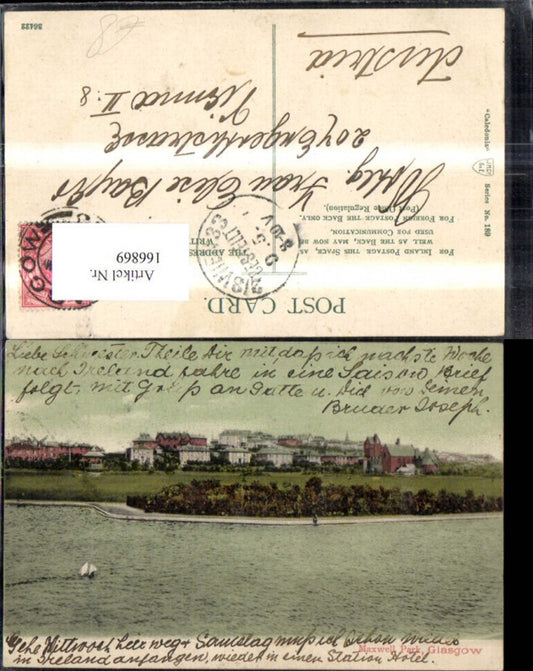 36422
Austria
Wohlg. Frau Elise Bayer
207 Engerthstrasse
Wien II. 8
"Caledonia" Series No. 189
FOR INLAND POSTAGE THIS SPACE, AS
WELL AS THE BACK, MAY NOW BE
USED FOR COMMUNICATION.
FOR FOREIGN POSTAGE THE BACK ONLY.
(Post Office Regulation).
POST CARD.
Artikel Nr.
166869
Liebe Schwester Theile Dir mit, dass ich nächste Woche
nach Ireland fahre in eine Saison. Brief
folgt, mit Gruss an Gatte u. Dich von Deinen
Bruder Joseph.
Maxwell Park, Glasgow
Gehe Mittwoch hier weg + Samstag muss ich schon wieder
in Ireland anfangen, wieder in einen Station Hotel.